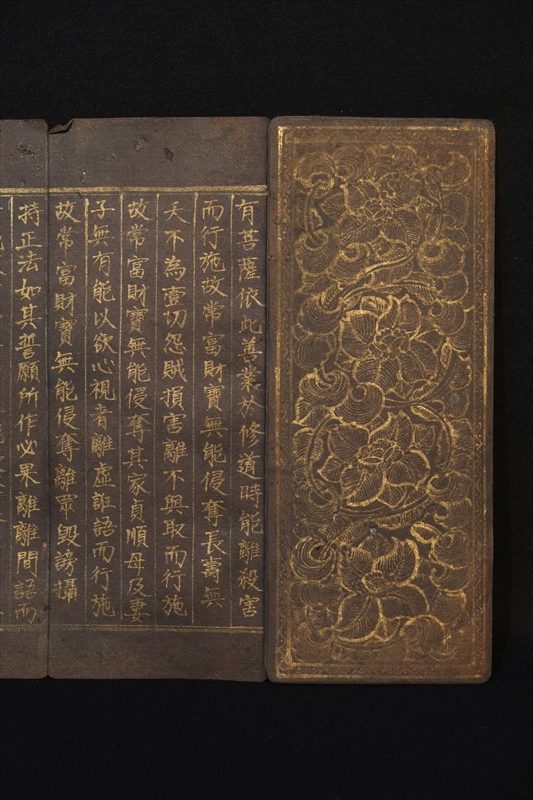 有菩薩依此善業於修道時能離殺害
而行施故常富財寶無能侵奪長壽無
夭不為壹切怨賊損害離不與取而行施
故常富財寶無能侵奪其家貞順母及妻
子無有能以欲心視者離虛誑語而行施
故常富財寶無能侵奪離眾毀謗攝
持正法如其誓願所作必果離離間語而